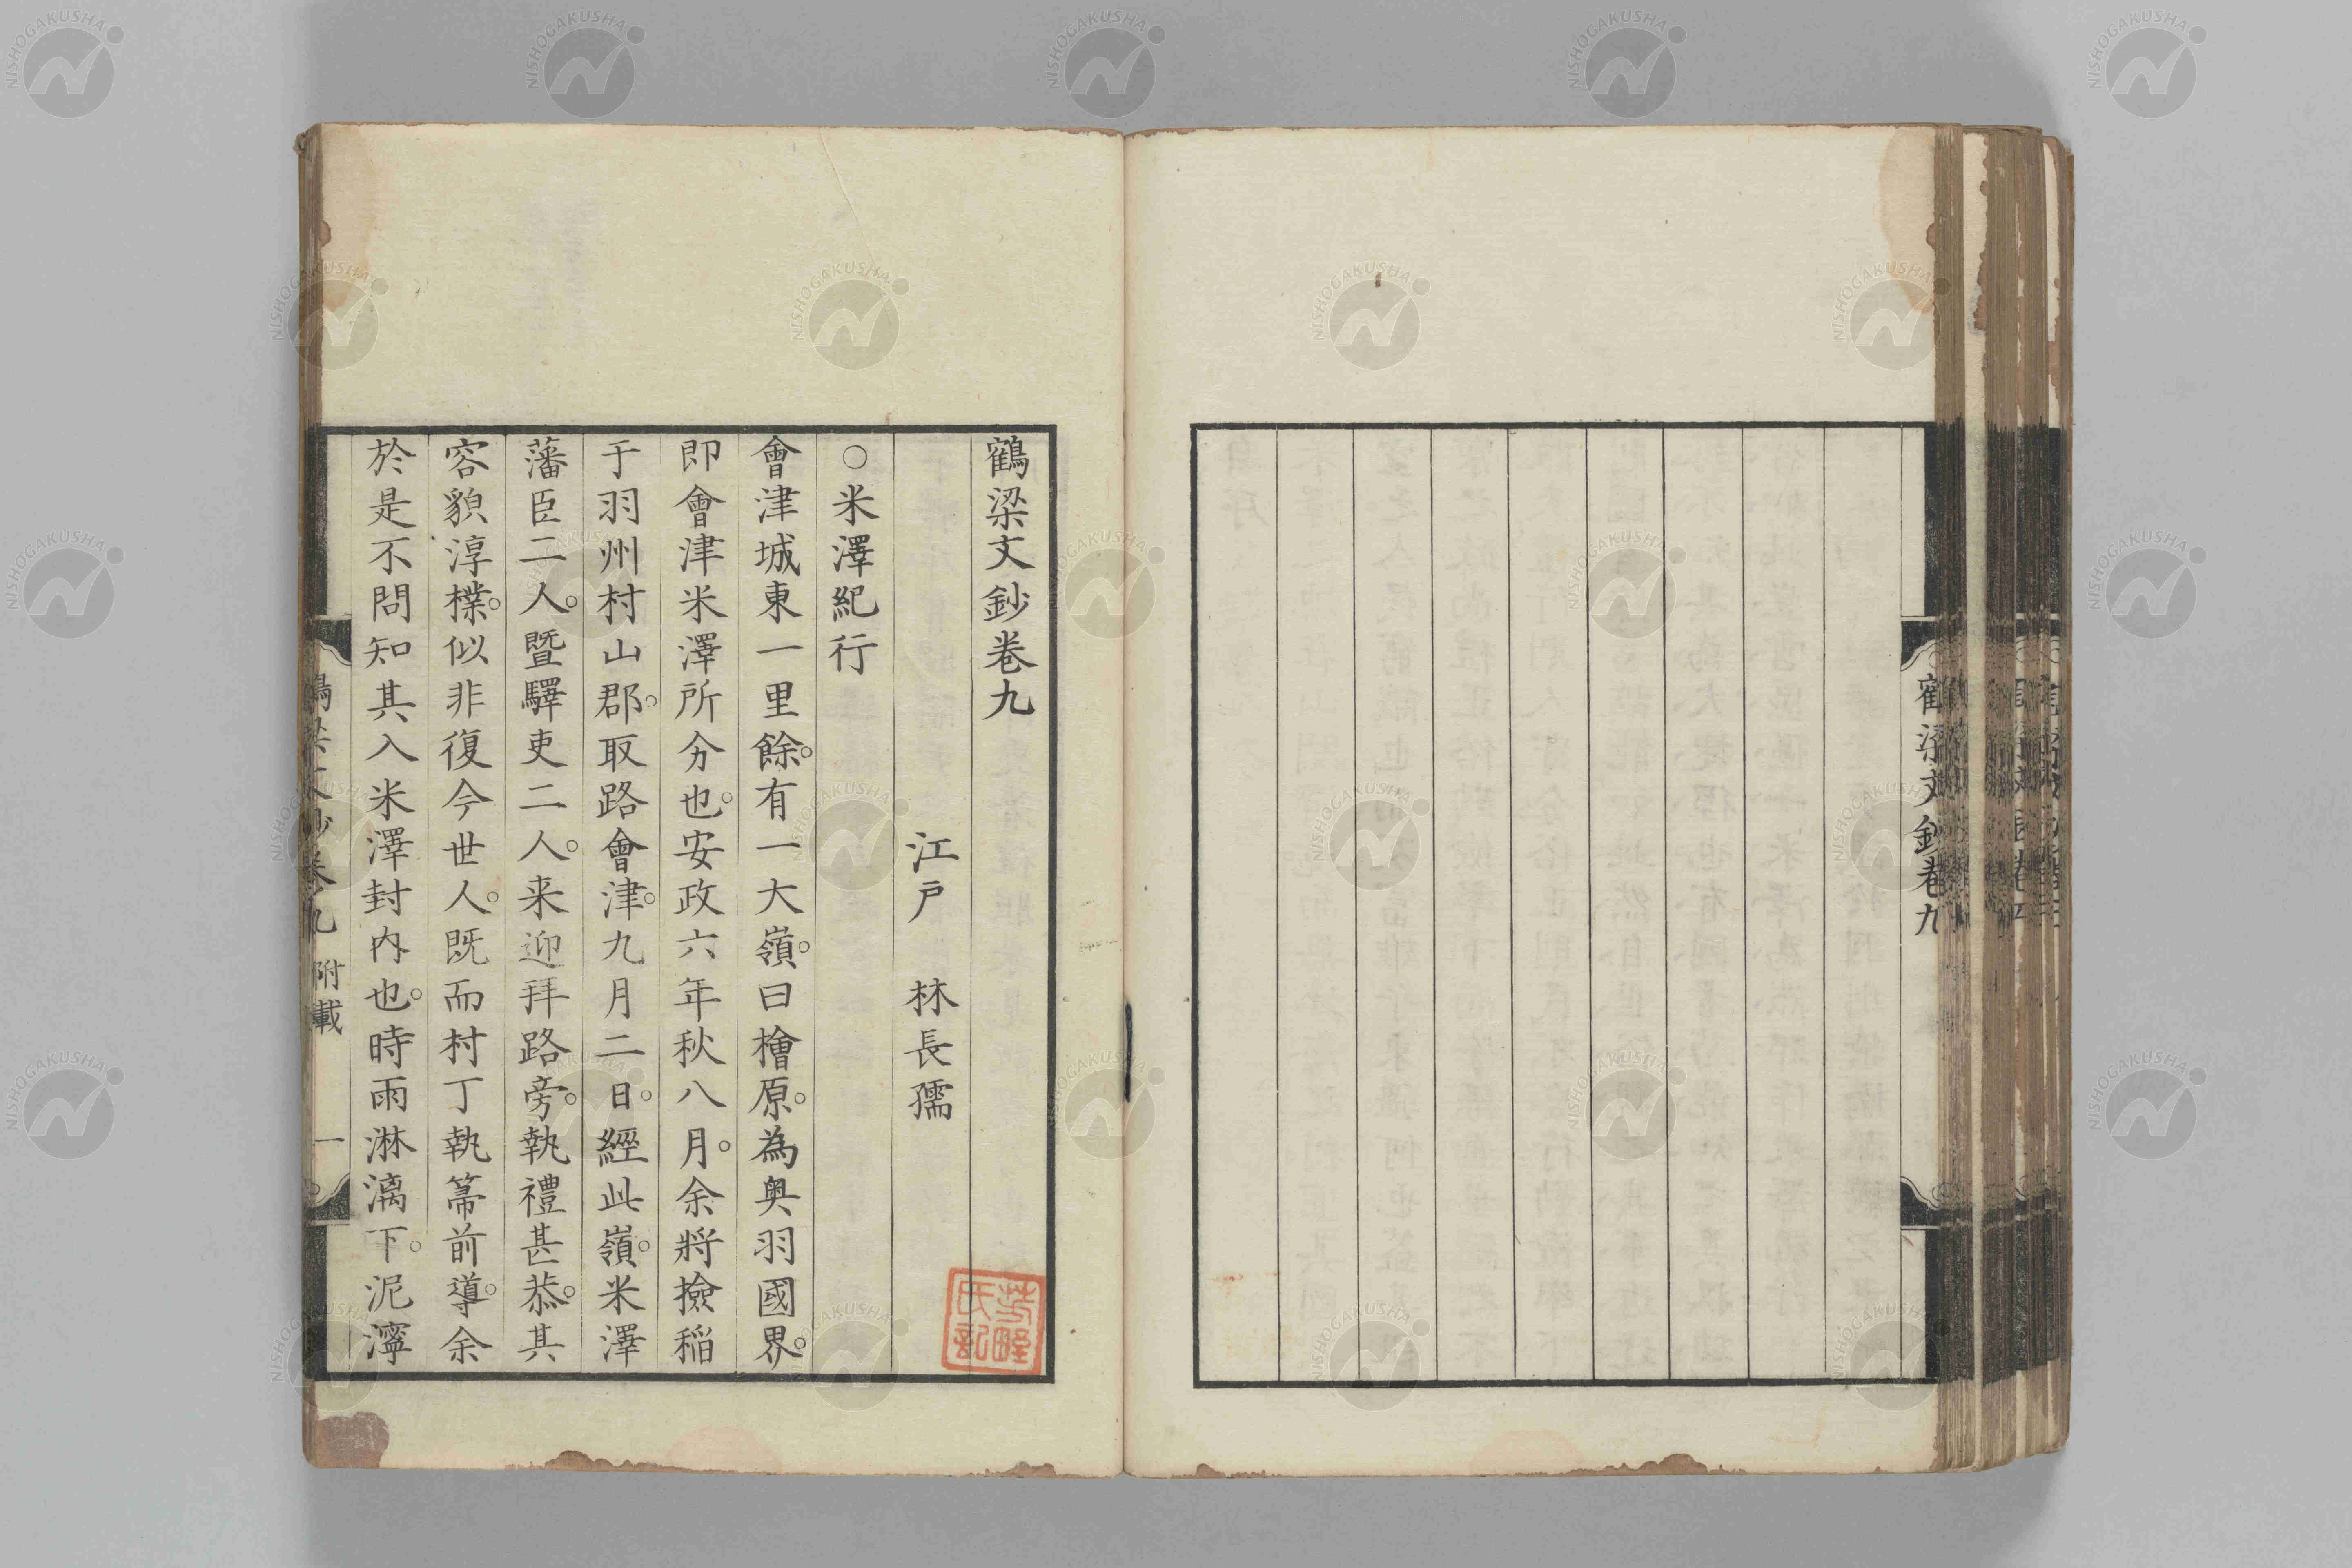 鶴梁文鈔卷九
鶴梁文鈔卷九
江戸 林長孺
○米澤紀行
會津城東一里餘。有一大嶺。曰檜原。為奥羽國界。
即會津米澤所分也。安政六年秋八月。余將撿稲
于羽州村山郡。取路會津。九月二日。經此嶺。米澤
藩臣二人。暨驛吏二人。来迎拜路旁。執禮甚恭。其
容貌淳樸。似非復今世人。既而村丁執箒前導。余
於是不問知其入米澤封内也。時雨淋漓下。泥濘
鶴梁文鈔卷九 附載 一
NISHOGAKUSHA